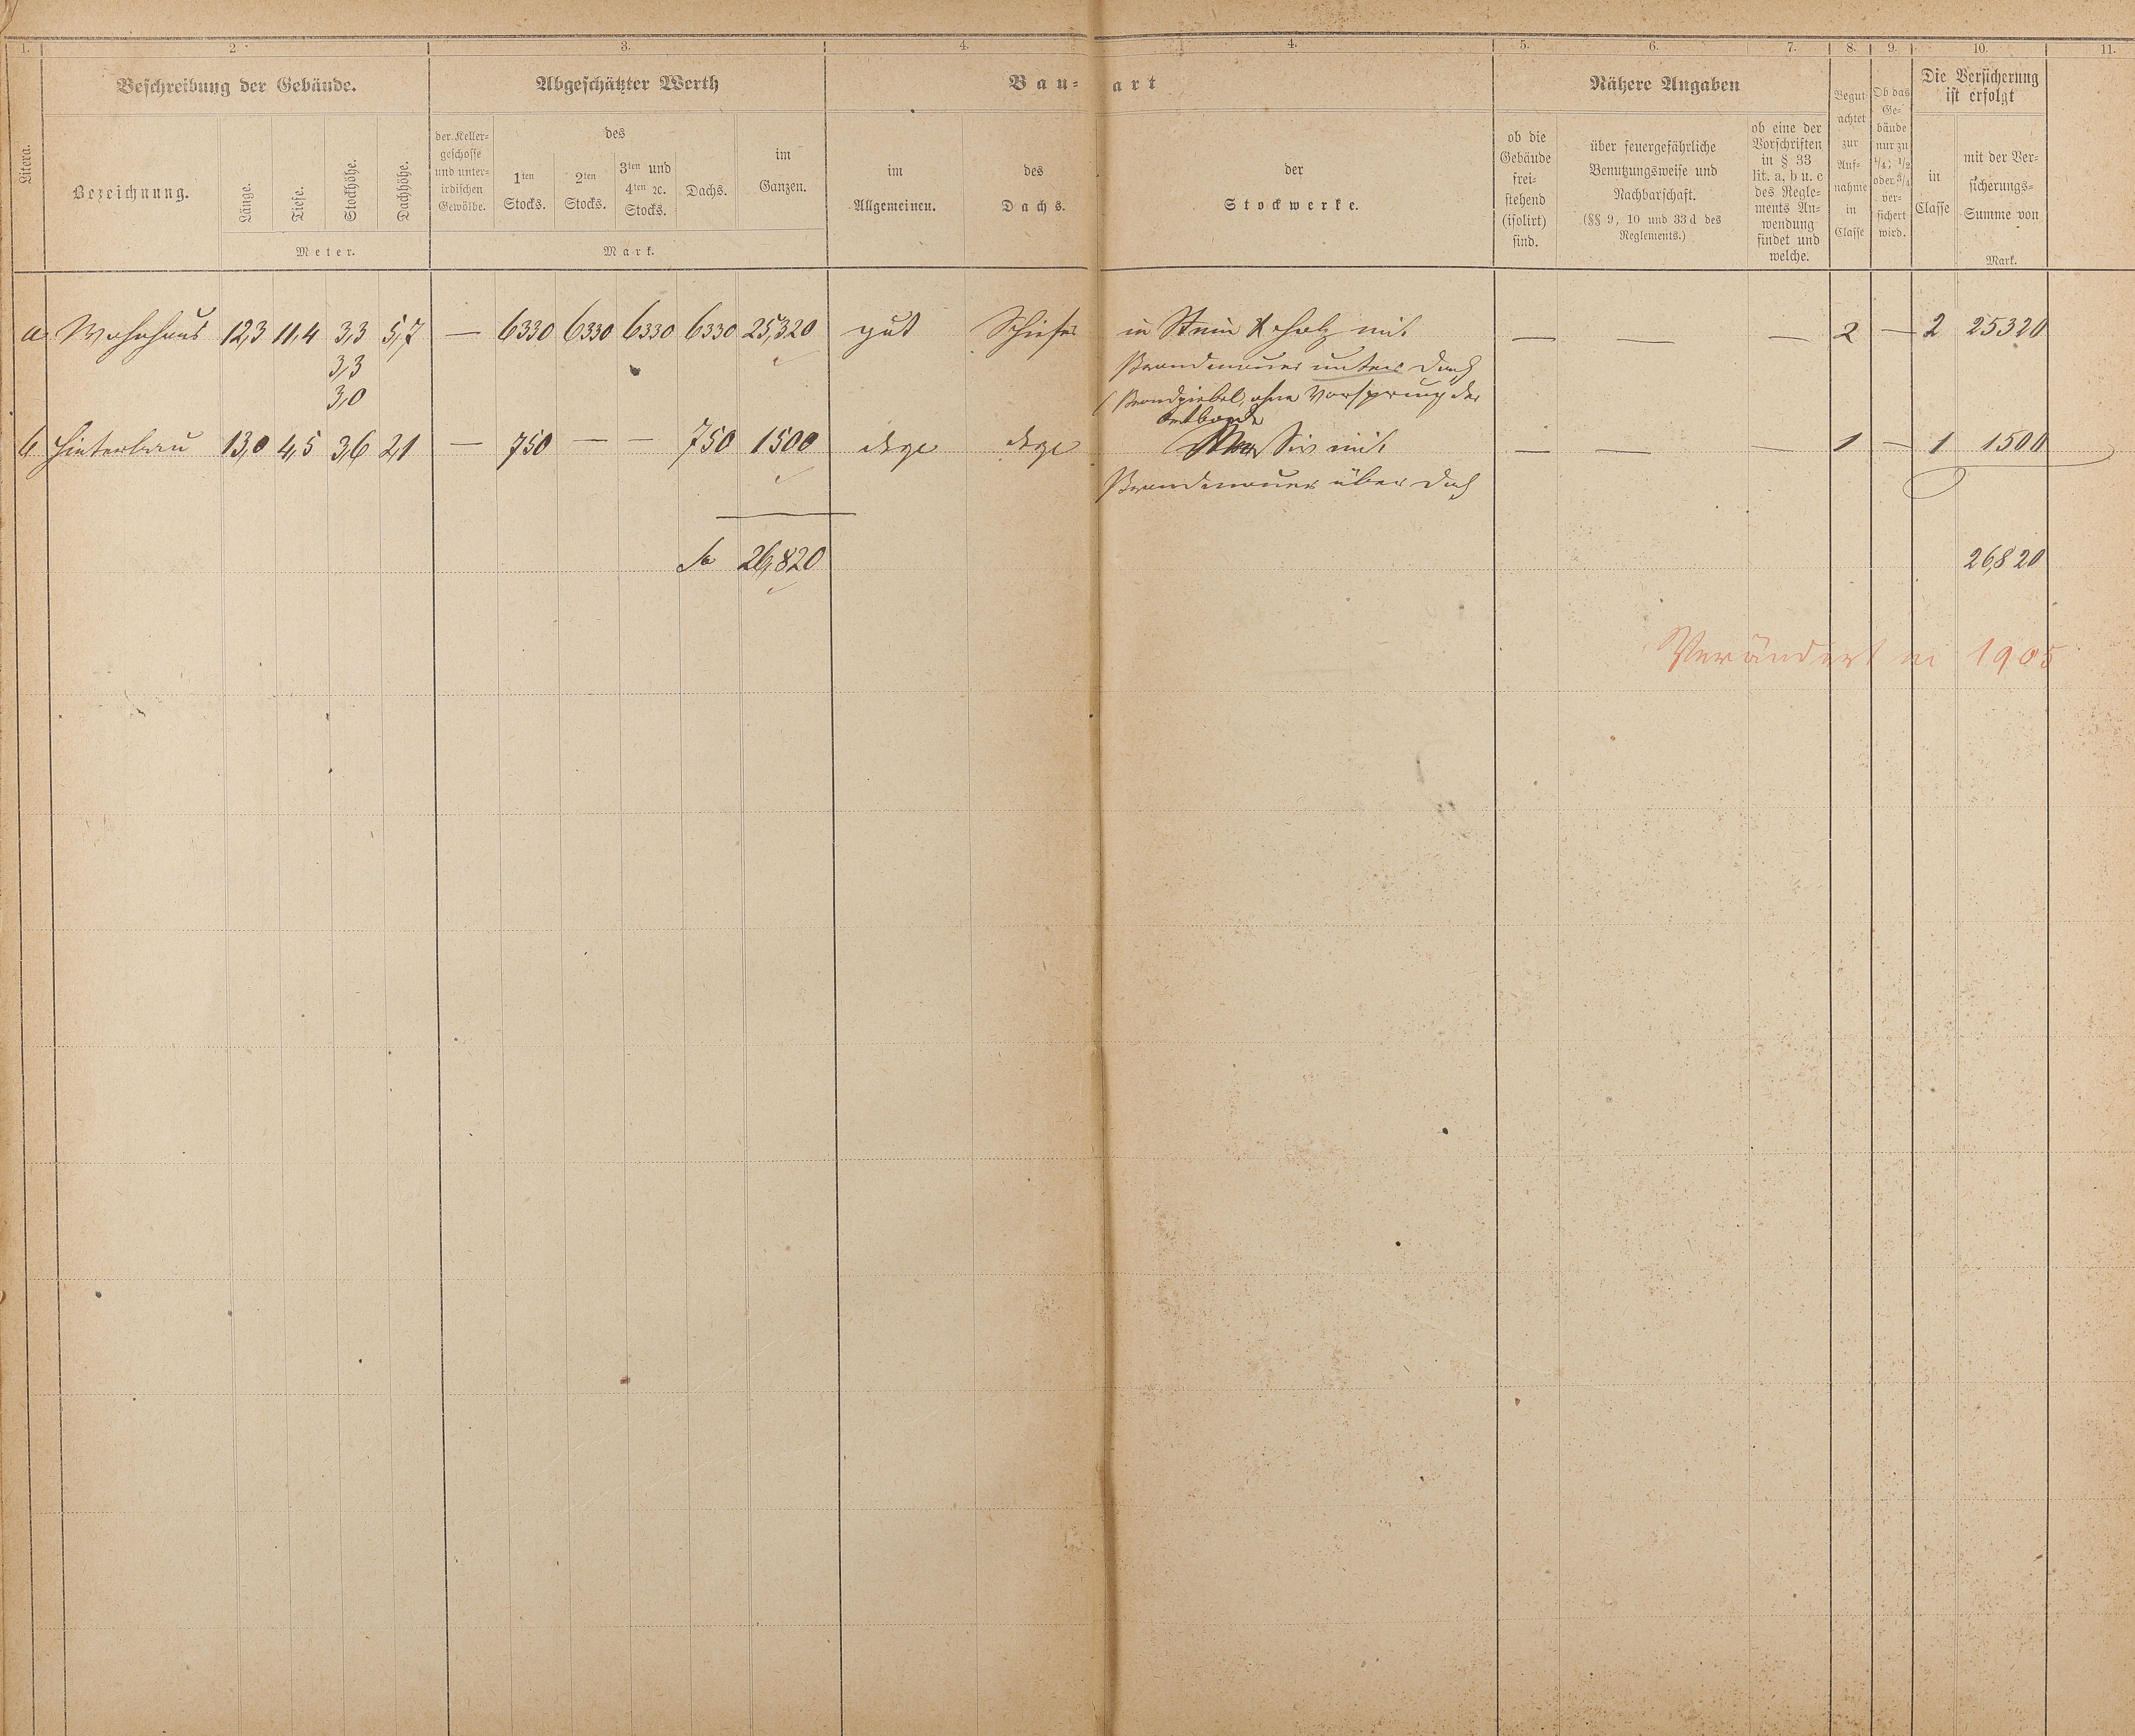 1. 2. 3. 4. 4. 5. 6. 7. 8. 9. 10. 11.
Litera.
Beschreibung der Gebäude.
Bezeichnung.
Länge.
Tiefe.
Stockhöhe.
Dachhöhe.
Meter.
Abgeschätzter Werth
der Keller-
geschosse
und unter-
irdischen
Gewölbe.
des
1ten
Stocks.
2ten
Stocks.
3ten und
4ten ꝛc.
Stocks.
Dachs.
im
Ganzen.
Mark.
Bau-art
im
Allgemeinen.
des
Dachs.
der
Stockwerke.
Nähere Angaben
ob die
Gebäude
frei-
stehend
(isolirt)
sind.
über feuergefährliche
Benutzungsweise und
Nachbarschaft.
(§§ 9, 10 und 33d des
Reglements.)
ob eine der
Vorschriften
in § 33
lit. a, b u. c
des Regle-
ments An-
wendung
findet und
welche.
Begut-
achtet
zur
Auf-
nahme
in
Classe
Ob das
Ge-
bäude
nur zu
1/4; 1/2
oder 3/4
ver-
sichert
wird.
Die Versicherung
ist erfolgt
in
Classe
mit der Ver-
sicherungs-
Summe von
Mark.
a Wohnhaus 12,3 11,4 3,3 5,7 — 6330 6330 6330 6330 25,320 gut Schiefer in Stein & Holz mit — — — 2 — 2 25320
3,3 Brandmauer unter Dach
3,0 Brandgiebel, ohne Vorsprung der
b Hinterbau 13,0 4,5 3,6 2,1 — 750 — — 750 1500 dsgl dsgl Massiv mit — — — 1 — 1 1500
Brandmauer über Dach
26,820 26,820
Verändert in 1905